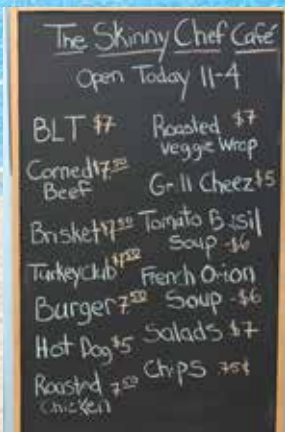 The Skinny Chef Café
Open Today 11-4
BLT $7
Corned $7.50
Beef
Brisket $7.50
Turkey club $7.50
Burger 7.50
Hot Dog $5
Roasted 7.50
Chicken
Roasted $7
Veggie Wrap
Grill Cheez $5
Tomato Basil
Soup - $6
French Onion
Soup - $6
Salads $7
Chips 75¢